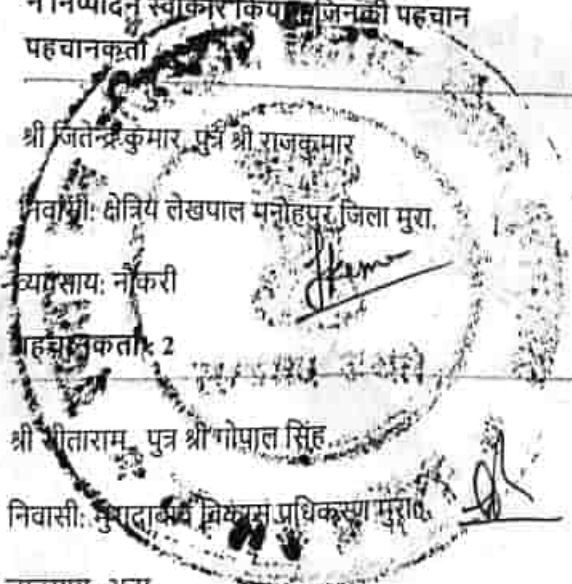 ने निष्पादन स्वीकार किया जिनकी पहचान
पहचानकर्ता
श्री जितेन्द्र कुमार, पुत्र श्री राजकुमार
निवासी: क्षेत्रिय लेखपाल मनोहपुर जिला मुरा.
व्यवसाय: नौकरी
पहचानकर्ता: 2
श्री सीताराम, पुत्र श्री गोपाल सिंह
निवासी: मुरादाबाद विकास प्रधिकरण मुरा.